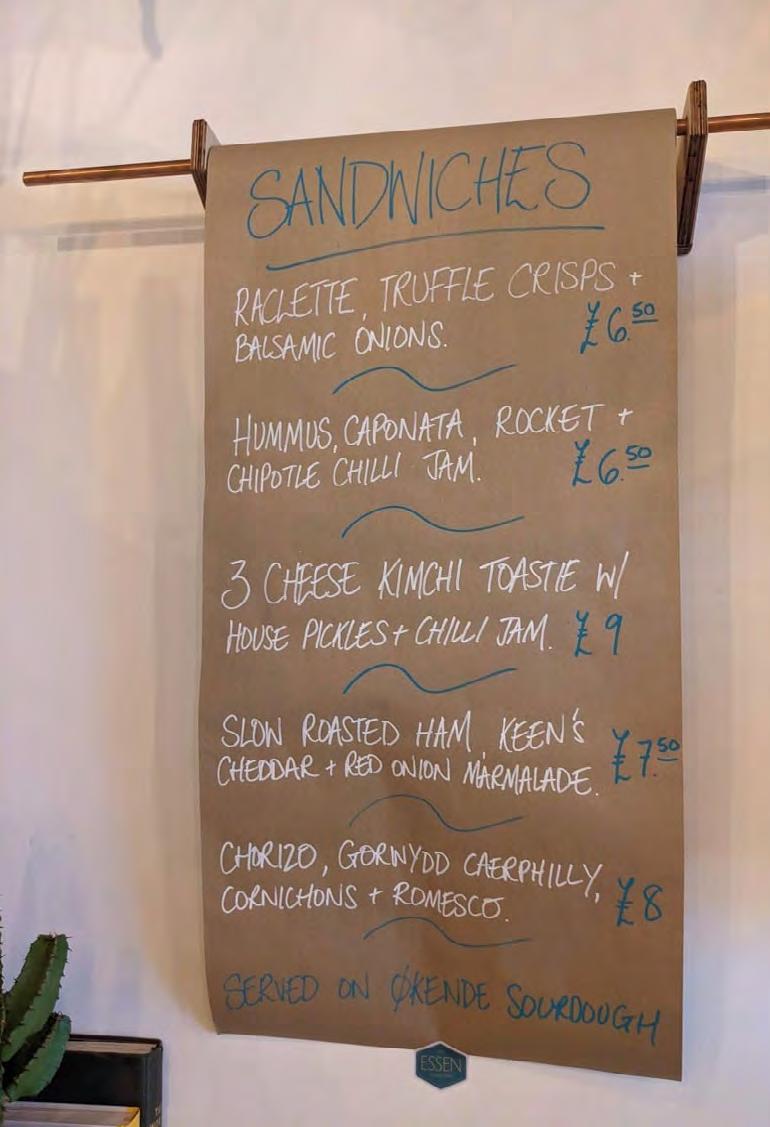 SANDWICHES
RACLETTE, TRUFFLE CRISPS +
BALSAMIC ONIONS. £6.50
HUMMUS, CAPONATA, ROCKET +
CHIPOTLE CHILLI JAM. £6.50
3 CHEESE KIMCHI TOASTIE W/
HOUSE PICKLES + CHILLI JAM. £9
SLOW ROASTED HAM, KEEN'S
CHEDDAR + RED ONION MARMALADE. £7.50
CHORIZO, GORWYDD CAERPHILLY,
CORNICHONS + ROMESCO. £8
SERVED ON ØKENDE SOURDOUGH
ESSEN